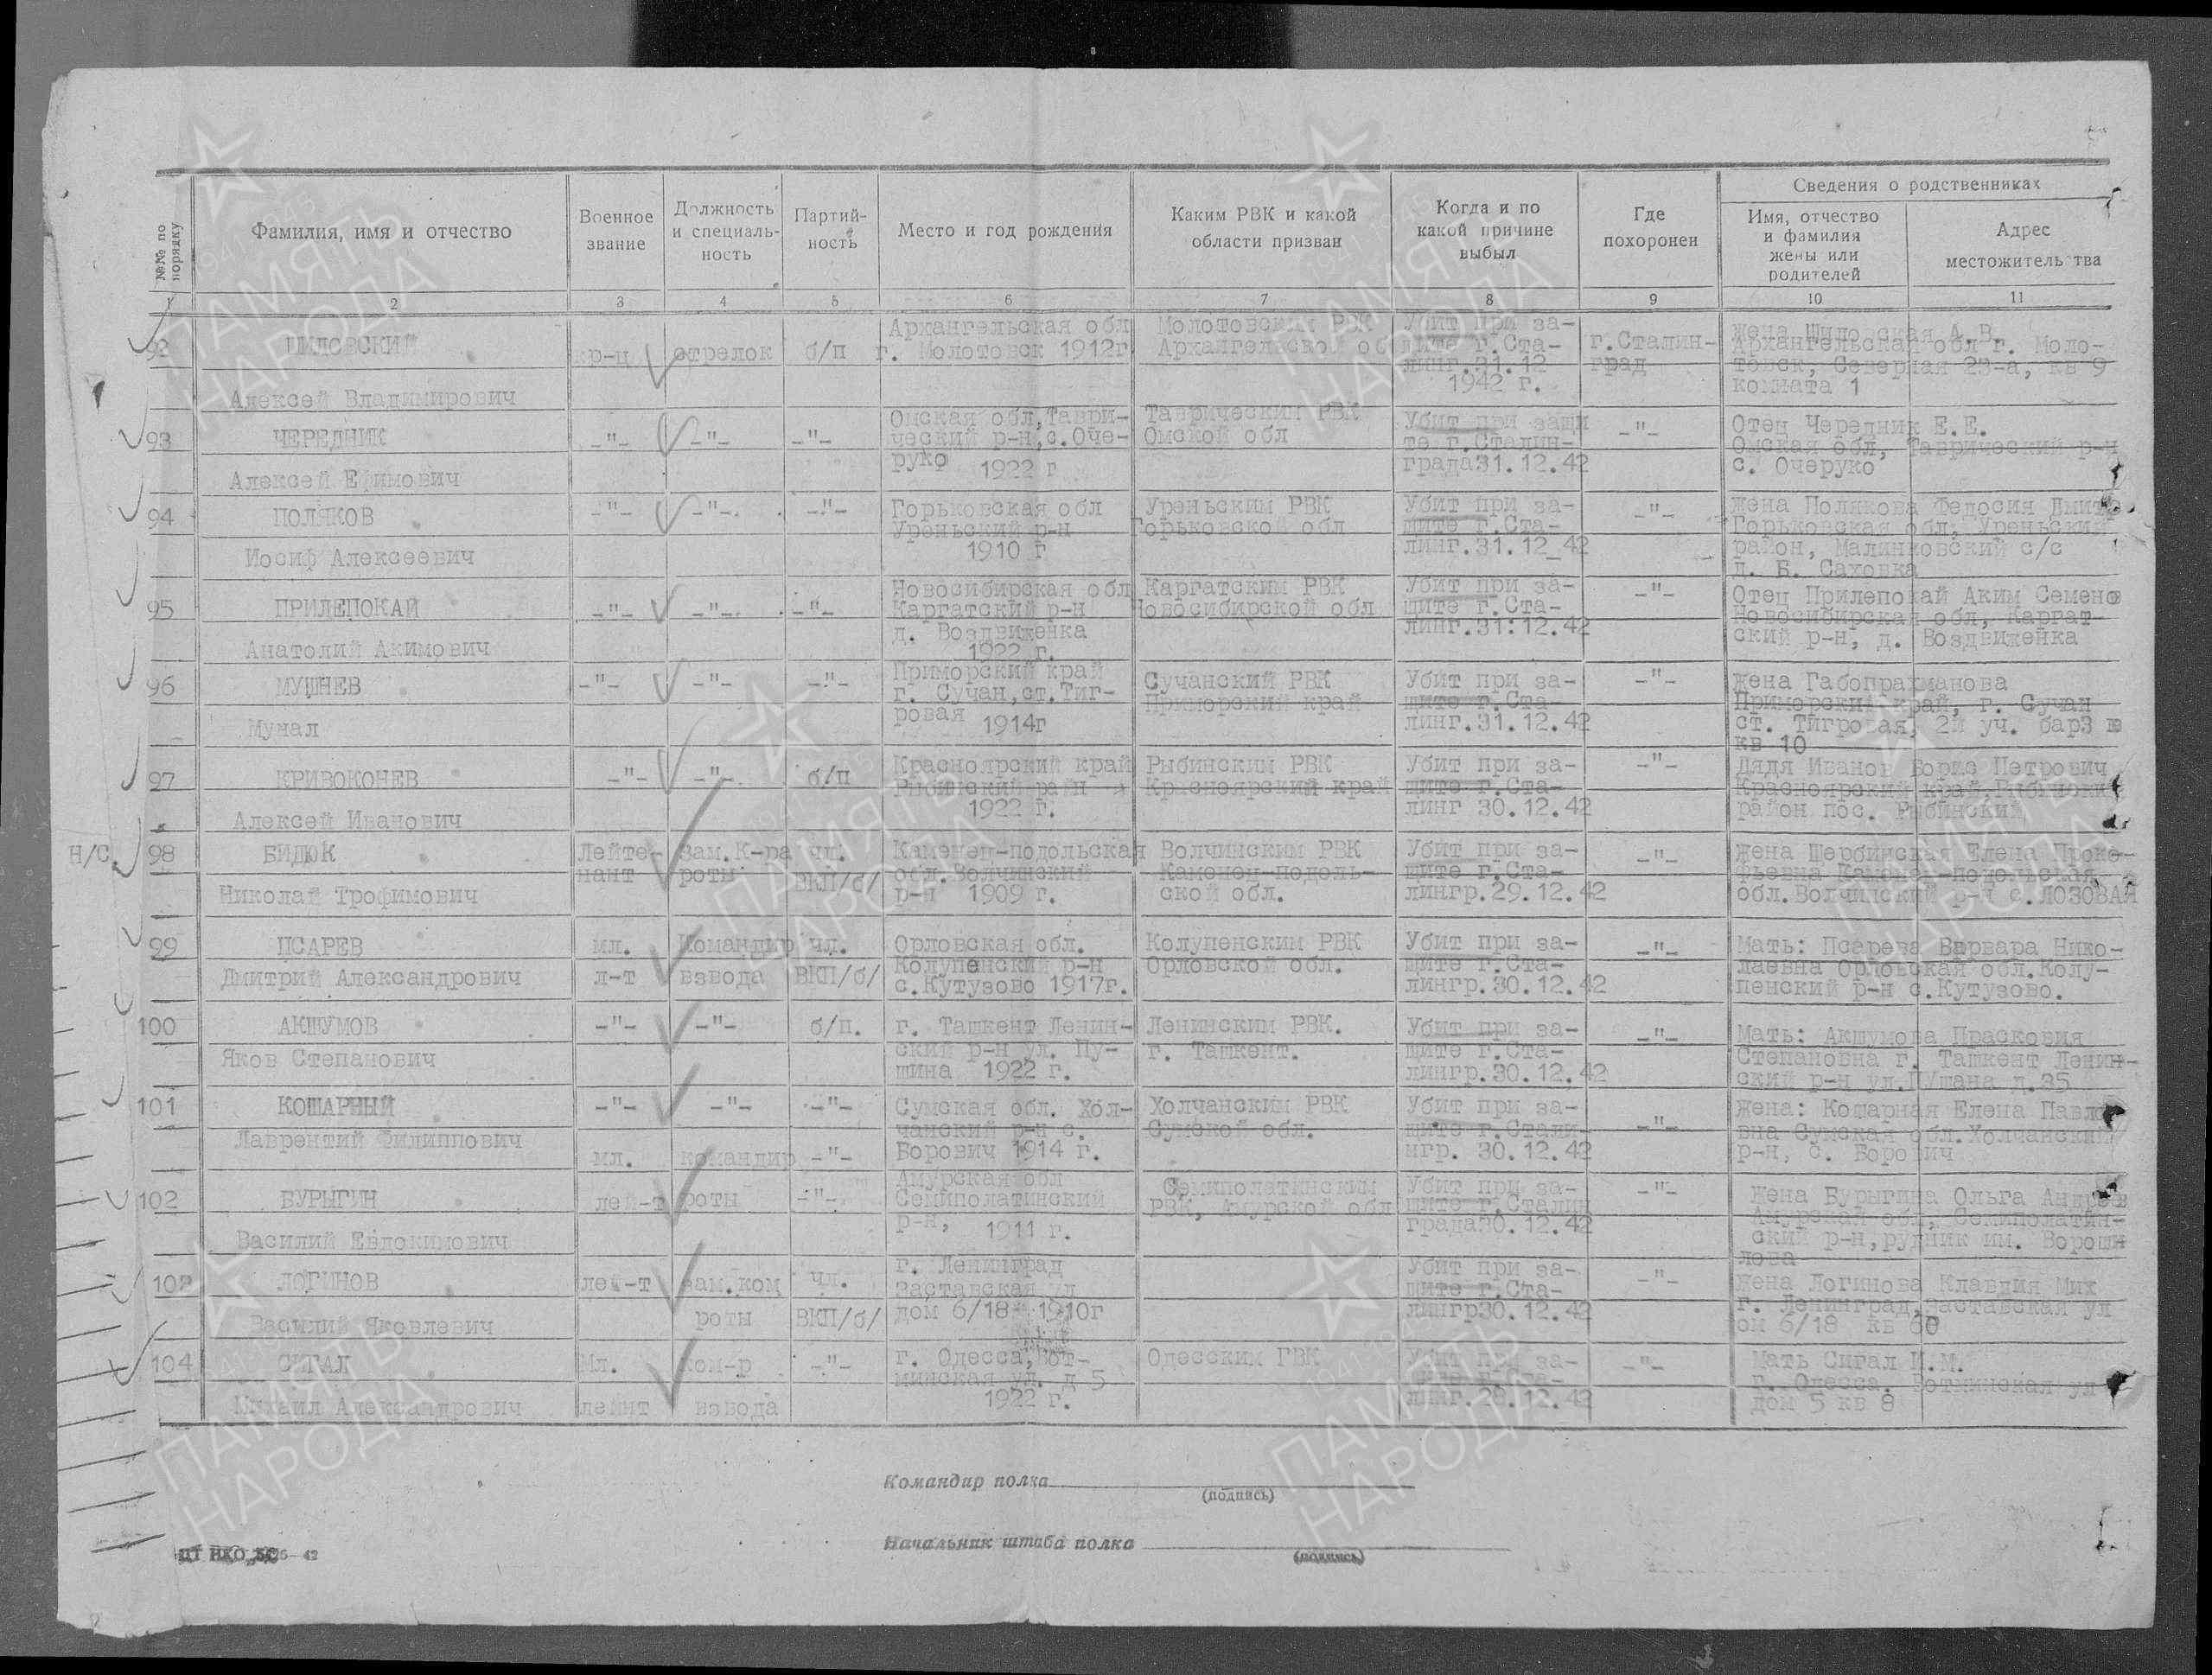 №№ по порядку
Фамилия, имя и отчество
Военное звание
Должность и специаль-ность
Партий-ность
Место и год рождения
Каким РВК и какой области призван
Когда и по какой причине выбыл
Где похоронен
Сведения о родственниках
Имя, отчество и фамилия жены или родителей
Адрес местожительства
2 3 4 5 6 7 8 9 10 11
92 ШИЛОВСКИЙ
Алексей Владимирович
кр-ц стрелок б/п
Архангельская обл
г. Молотовск 1912г
Молотовским РВК
Архангельской обл
Убит при за-
щите г.Ста-
линг.31.12
1942 г.
г.Сталин-
град
Жена Шиловская А.В.
Архангельская обл г. Моло-
товск, Северная 23-а, кв 9
комната 1
93 ЧЕРЕДНИК
Алексей Ефимович
-"- -"- -"-
Омская обл,Таври-
ческий р-н,с.Оче-
руко 1922 г
Таврическим РВК
Омской обл
Убит при защи
те г.Сталин-
града31.12.42
-"-
Отец Чередник Е.Е.
Омская обл, Таврический р-н
с. Очеруко
94 ПОЛЯКОВ
Иосиф Алексеевич
-"- -"- -"-
Горьковская обл
Уреньский р-н
1910 г
Уреньским РВК
Горьковской обл
Убит при за-
щите г.Ста-
линг.31.12_42
-"-
Жена Полякова Федосия Дмит
Горьковская обл, Уреньский
район, Малиновский с/с
д. Б. Саховка
95 ПРИЛЕПОКАЙ
Анатолий Акимович
-"- -"- -"-
Новосибирская обл
Каргатский р-н
д. Воздвиженка
1922 г.
Каргатским РВК
Новосибирской обл
Убит при за-
щите г.Ста-
линг.31:12.42
-"-
Отец Прилепокай Аким Семено
Новосибирская обл, Каргат-
ский р-н, д. Воздвиденка
96 МУШНЕВ
Мунал
-"- -"- -"-
Приморский край
г. Сучан,ст.Тиг-
ровая 1914г
Сучанский РВК
Приморский край
Убит при за-
щите г.Ста-
линг.31.12.42
-"-
Жена Габопрахманова
Приморский край, г. Сучан
ст. Тигровая, 2й уч. бар3
кв 10
97 КРИВОКОНЕВ
Алексей Иванович
-"- -"- б/п
Красноярский край
Рыбинский райн
1922 г.
Рыбинским РВК
Красноярский край
Убит при за-
щите г.Ста-
линг 30.12.42
-"-
Дядя Иванов Борис Петрович
Красноярский край,
район пос. Рыбинский
Н/С. 98 БИДЮК
Николай Трофимович
Лейте-
нант
Зам.К-ра
роты
чл.
ВКП/б/
Каменец-подольская
обл.Волчинский
р-н 1909 г.
Волчинским РВК
Каменец-подоль-
ской обл.
Убит при за-
щите г.Ста-
лингр.29.12.42
-"-
Жена Щербинская Елена Проко-
фьевна Каменец-подольская
обл.Волчинский р-н с.ЛОЗОВАЯ
99 ПСАРЕВ
Дмитрий Александрович
мл.
л-т
Командир
взвода
чл.
ВКП/б/
Орловская обл.
Колупенский р-н
с.Кутузово 1917г.
Колупенским РВК
Орловской обл.
Убит при за-
щите г.Ста-
лингр.30.12.42
-"-
Мать: Псарева Варвара Нико-
лаевна Орловская обл.Колу-
пенский р-н с.Кутузово.
100 АКШУМОВ
Яков Степанович
-"- -"- б/п.
г. Ташкент Ленин-
ский р-н ул. Пу-
шина 1922 г.
Ленинским РВК.
г. Ташкент.
Убит при за-
щите г.Ста-
лингр.30.12.42
-"-
Мать: Акшумова Прасковия
Степановна г. Ташкент Ленин-
ский р-н ул.Пушана д.35
101 КОШАРНЫЙ
Лаврентий Филиппович
-"- -"- -"-
Сумская обл. Хол-
чанский р-н с.
Борович 1914 г.
Холчанским РВК
Сумской обл.
Убит при за-
щите г.Стали-
нгр. 30.12.42
-"-
Жена: Кошарная Елена Павло
вна Сумская обл.Холчанский
р-н, с. Борович
102 БУРЫГИН
Василий Евдокимович
мл.
лей-т
командир
роты
-"-
-"-
Амурская обл
Семиполатинский
р-н, 1911 г.
Семиполатинским
РВК, Амурской обл
Убит при за-
щите г.Сталин
града30.12.42
-"-
Жена Бурыгина Ольга Андрее
Амурская обл, Семиполатин-
ский р-н,рудник им. Ворошн
лова
103 ЛОГИНОВ
Василий Яковлевич
лей-т
зам.ком
роты
чл.
ВКП/б/
г. Ленинград
Заставская ул
дом 6/18 1910г
Убит при за-
щите г.Ста-
лингр30.12.42
-"-
Жена Логинова Клавдия Мих
г. Ленинград,Заставская ул
ом 6/18 кв 60
104 СИГАЛ
Михаил Александрович
Мл.
лейнт
ком-р
взвода
-"-
г. Одесса,Вот-
минская ул. д 5
1922 г.
Одесским ГВК
Убит при за-
щите г.Ста-
линг.28.12.42
-"-
Мать Сигал И.М.
г. Одесса, Вотминская ул
дом 5 кв 8
Командир полка
(подпись)
Начальник штаба полка
(подпись)
ПАМЯТЬ НАРОДА